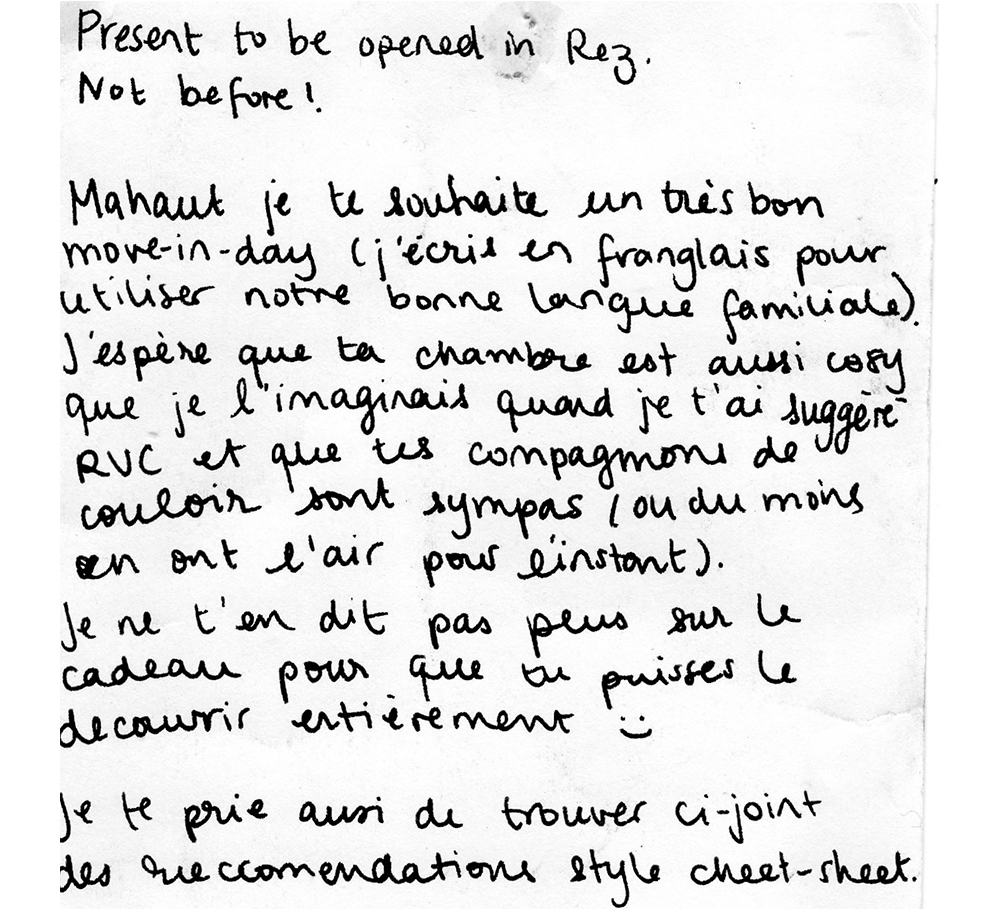 Present to be opened in Rez.
Not before!
Mahaut je te souhaite un très bon
move-in-day (j'écris en franglais pour
utiliser notre bonne langue familiale).
J'espère que ta chambre est aussi cosy
que je l'imaginais quand je t'ai suggèré
RVC et que tes compagnons de
couloir sont sympas (ou du moins
en ont l'air pour l'instant).
Je ne t'en dit pas plus sur le
cadeau pour que tu puisses le
decouvrir entièrement :)
Je te prie aussi de trouver ci-joint
des reccomendations style cheet-sheet.